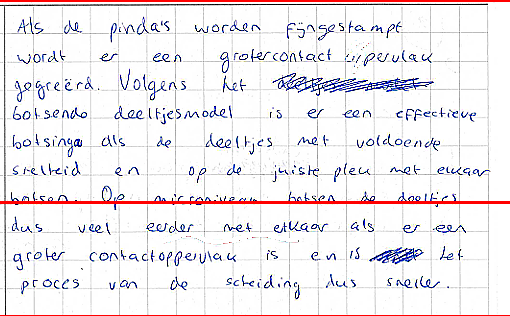 Als de pinda's worden fijngestampt
wordt er een groter contact oppervlak
gegreërd. Volgens het
botsende deeltjesmodel is er een effectieve
botsing als de deeltjes met voldoende
snelheid en op de juiste plek met elkaar
botsen. Op microniveau botsen de deeltjes
dus veel eerder met elkaar als er een
groter contactoppervlak is en is het
proces van de scheiding dus sneller.